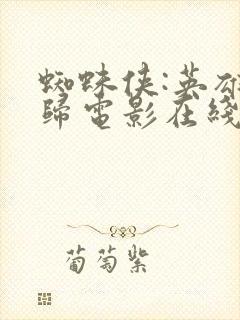 蜘蛛侠:英雄
歸電影在綫
葡萄紫